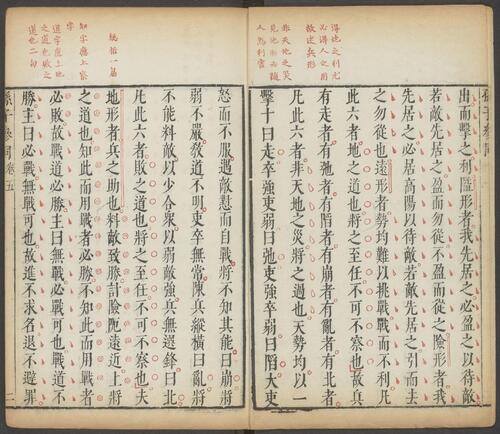 得地之利尤
必得人之用
故述兵形
非天地之災
人為利害
出而擊之利隘形者我先居之必盈之以待敵
若敵先居之盈而勿從不盈而從之險形者我
先居之必居高陽以待敵若敵先居之引而去
之勿從也遠形者勢均難以挑戰戰而不利凡
此六者地之道也將之至任不可不察也故兵
有走者有弛者有陷者有崩者有亂者有北者
凡此六者非天地之災將之過也夫勢均以一
擊十曰走卒強吏弱曰弛吏強卒弱曰陷大吏
總結一篇
知字應上察
字
道字應上地
之道也敗之
道也二句
怒而不服遇敵懟而自戰將不知其能曰崩將
弱不嚴教道不明吏卒無常陳兵縱橫曰亂將
不能料敵以少合眾以弱敵強兵無選鋒曰北
凡此六者敗之道也將之至任不可不察也夫
地形者兵之助也料敵致勝計險阨遠近上將
之道也知此而用戰者必勝不知此而用戰者
必敗故戰道必勝主曰無戰必戰可也戰道不
勝主曰必戰無戰可也故進不求名退不避罪
孫子參同卷五
二